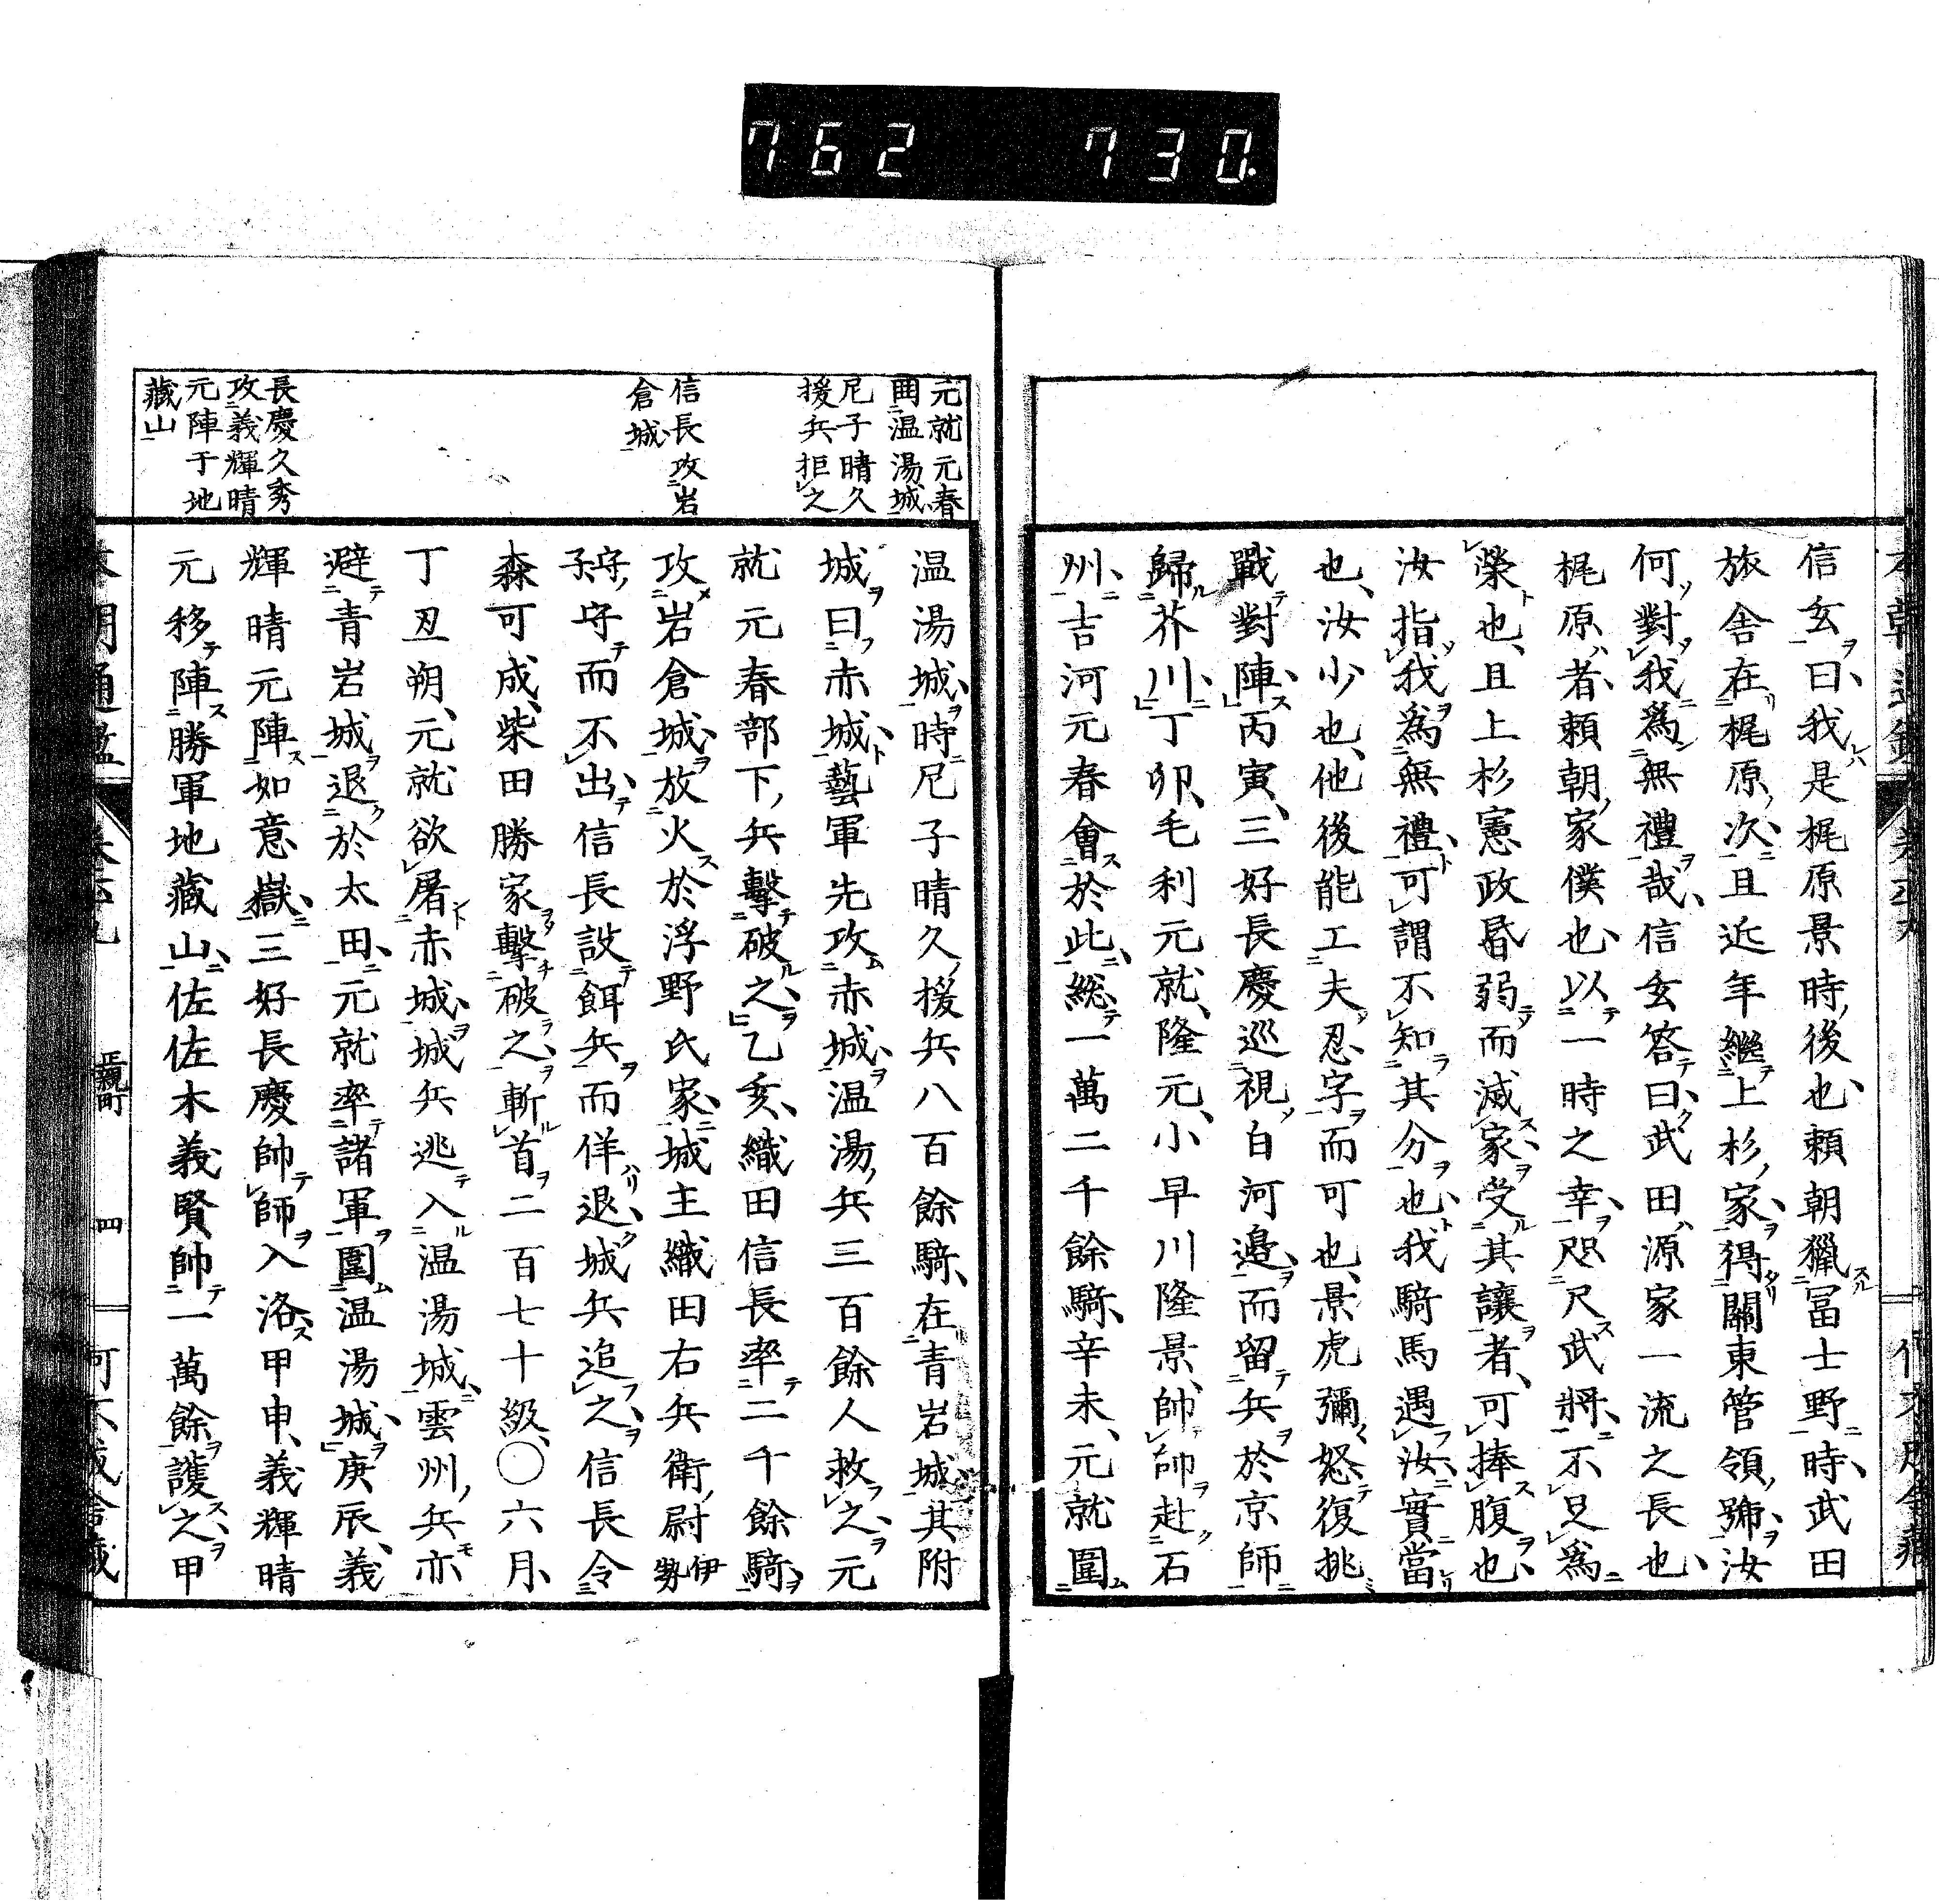 762 730.
信玄曰我是梶原景時後也頼朝獵冨士野時武田
旅舎在梶原次且近年繼上杉家得關東管領號汝
何對我爲無禮哉信玄答曰武田源家一流之長也
梶原者頼朝家僕也以一時之幸咫尺武將不足爲
榮也且上杉憲政昬弱而滅家受其讓者可捧腹也
汝指我爲無禮可謂不知其分也我騎馬遇汝實當
也汝少也他後能工夫忍字而可也景虎彌怒復挑
戰對陣丙寅三好長慶巡視白河邉而留兵於京師
歸芥川丁卯毛利元就隆元小早川隆景帥師赴石
州吉河元春會於此総一萬二千餘騎辛未元就圍
元就元春
囲温湯城
尼子晴久
援兵拒之
信長攻岩
倉城
長慶久秀
攻義輝晴
元陣于地
藏山
温湯城時尼子晴久援兵八百餘騎在青岩城其附
城曰赤城藝軍先攻赤城温湯兵三百餘人救之元
就元春部下兵擊破之乙亥織田信長率二千餘騎
攻岩倉城放火於浮野民家城主織田右兵衛尉伊勢
守子守而不出信長設餌兵而佯退城兵追之信長令
森可成柴田勝家擊破之斬首二百七十級〇六月
丁丑朔元就欲屠赤城城兵逃入温湯城雲州兵亦
避青岩城退於太田元就率諸軍圍温湯城庚辰義
輝晴元陣如意嶽三好長慶帥師入洛甲申義輝晴
元移陣勝軍地藏山佐佐木義賢帥一萬餘護之甲
本朝通鑑
正親町
四